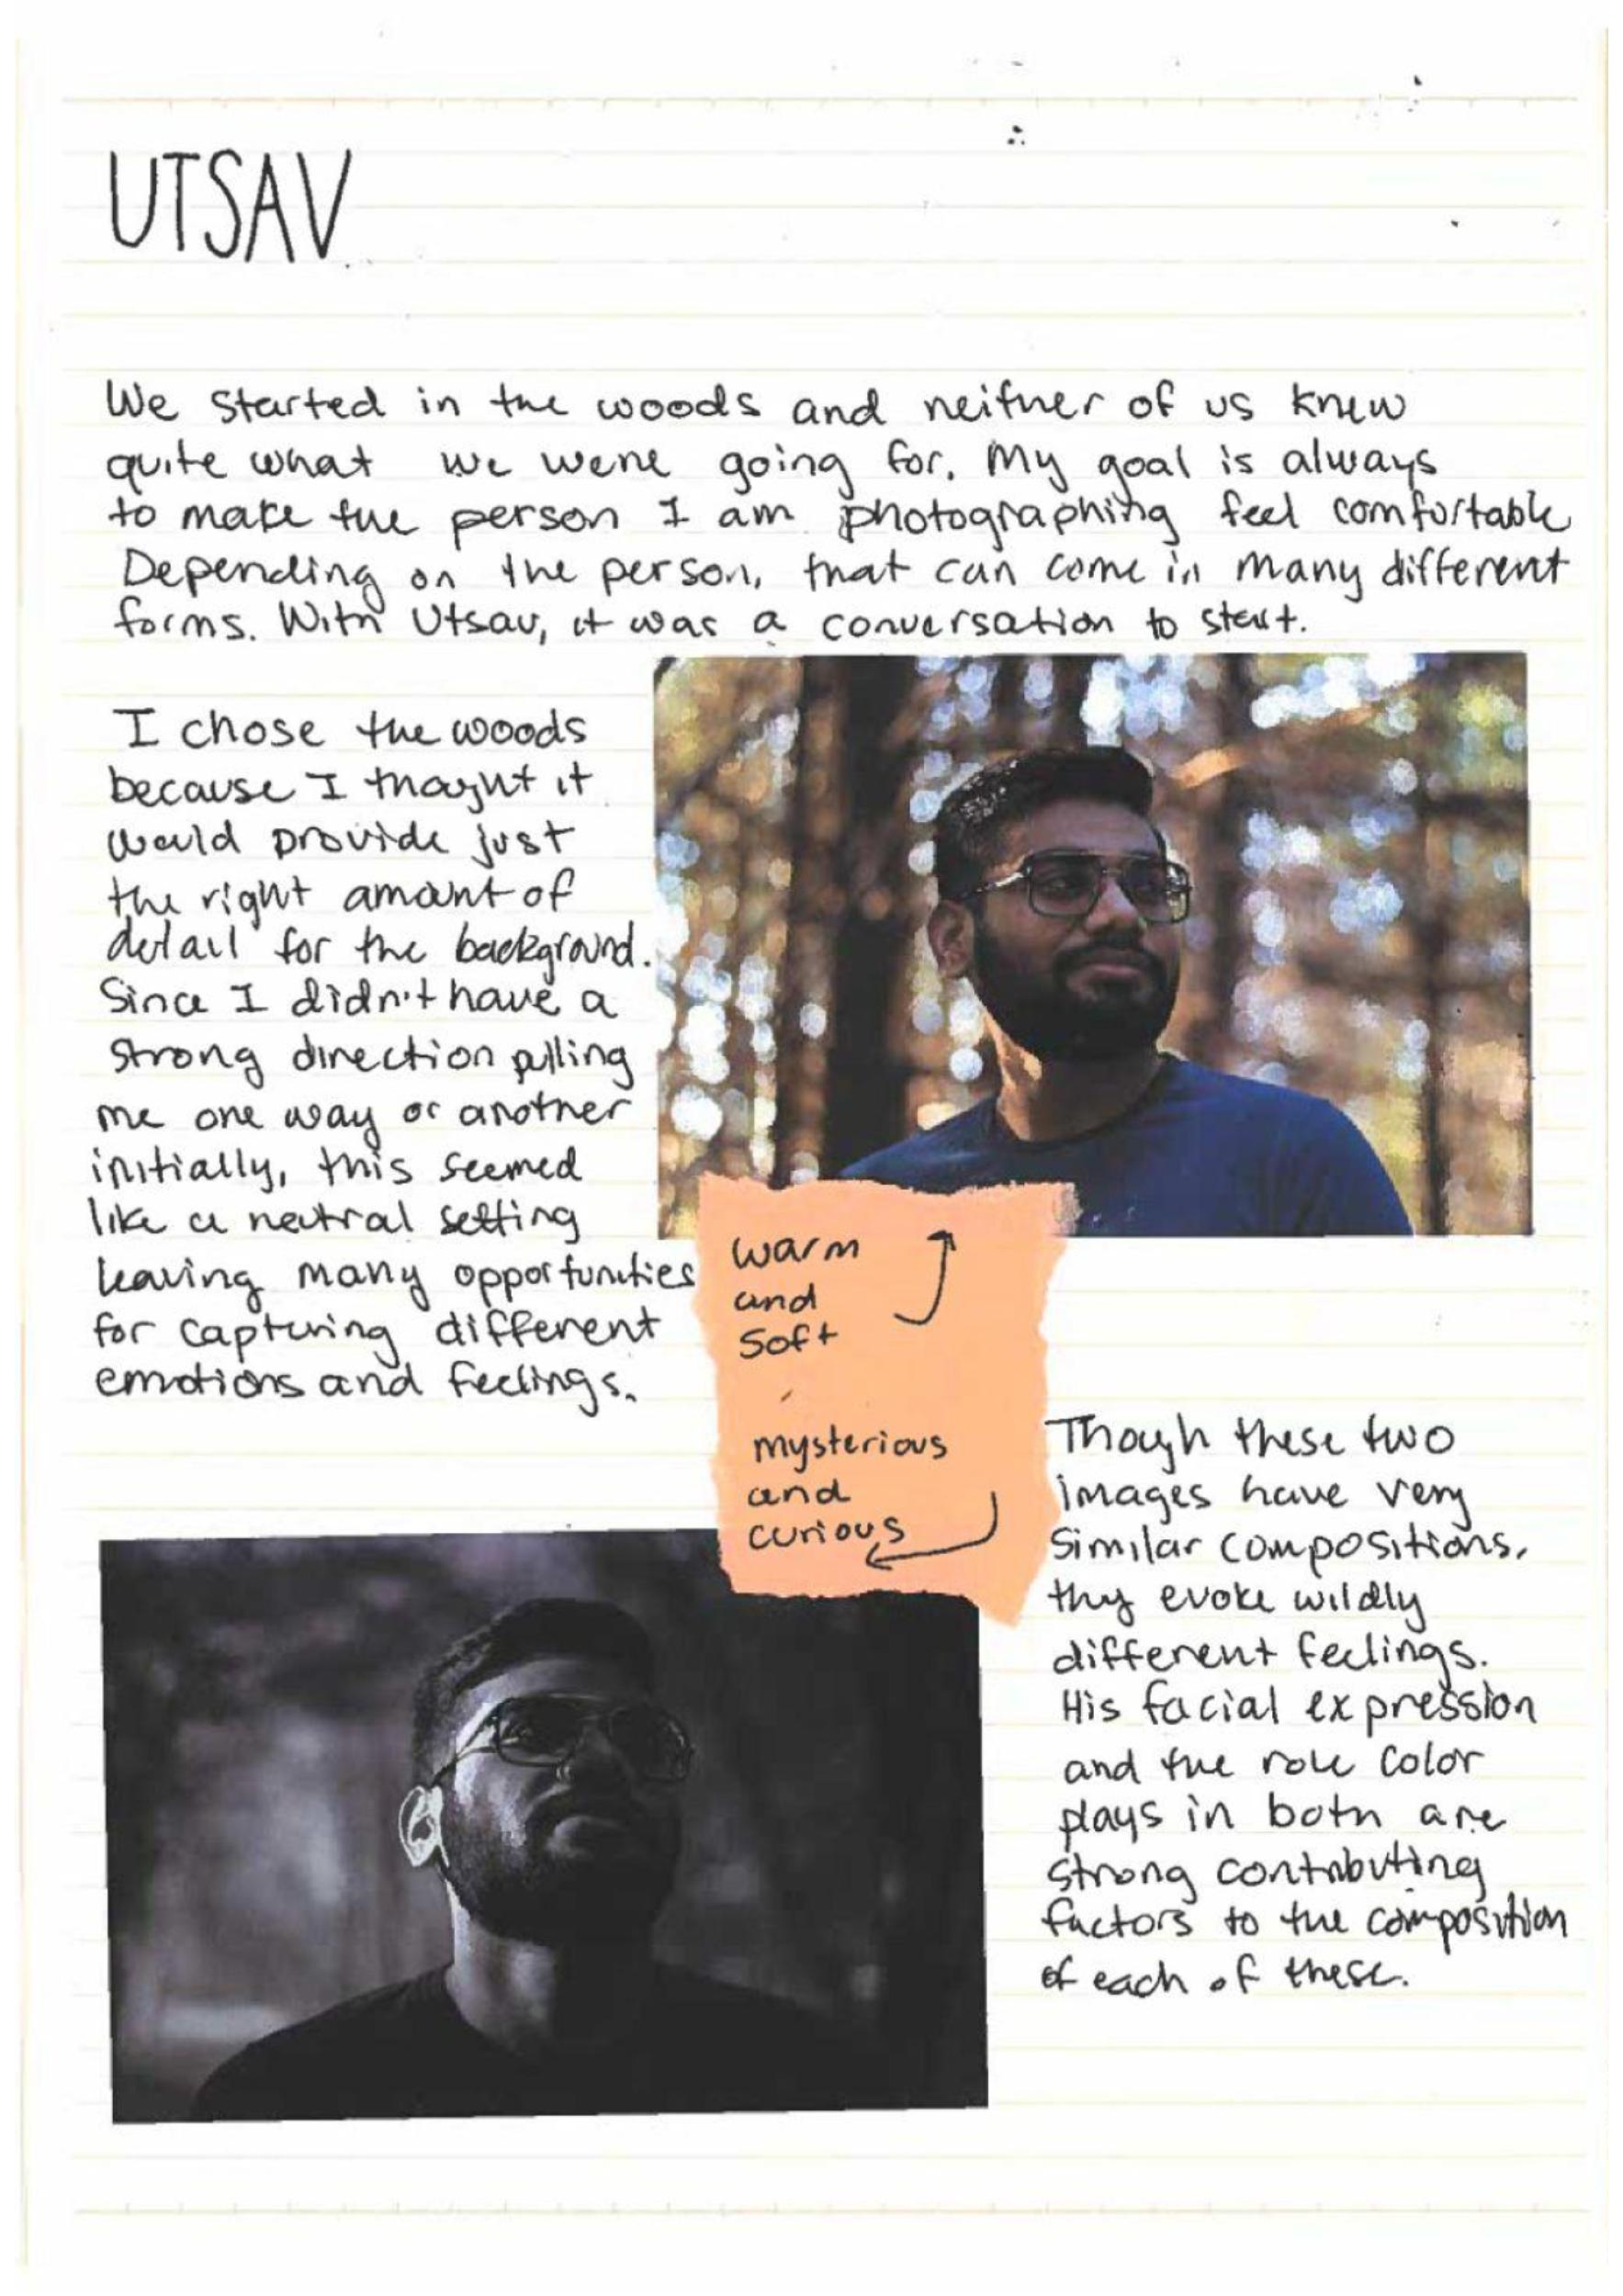 UTSAV
We started in the woods and neither of us knew
quite what we were going for. My goal is always
to make the person I am photographing feel comfortable
Depending on the person, that can come in many different
forms. With Utsav, it was a conversation to start.
I chose the woods
because I thought it
would provide just
the right amount of
detail for the background.
Since I didn't have a
strong direction pulling
me one way or another
initially, this seemed
like a neutral setting
leaving many opportunities
for capturing different
emotions and feelings.
warm
and
soft
mysterious
and
curious
Though these two
images have very
similar compositions,
they evoke wildly
different feelings.
His facial expression
and the role color
plays in both are
strong contributing
factors to the composition
of each of these.